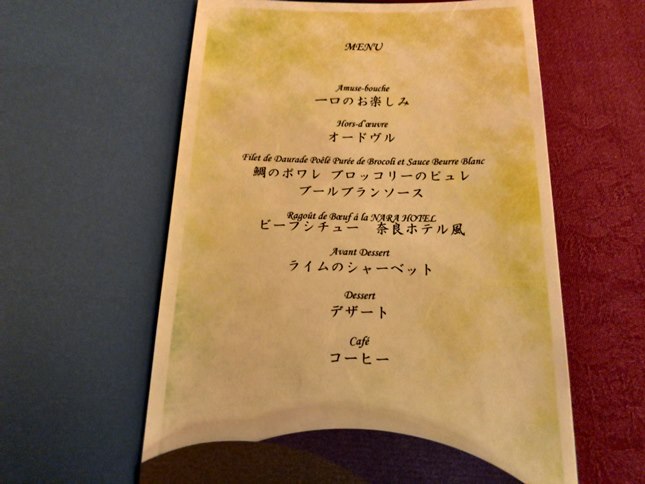 MENU
Amuse-bouche
一口のお楽しみ
Hors-d'œuvre
オードヴル
Filet de Daurade Poêlé Purée de Brocoli et Sauce Beurre Blanc
鯛のポワレ ブロッコリーのピュレ
ブールブランソース
Ragoût de Bœuf á la NARA HOTEL
ビーフシチュー 奈良ホテル風
Avant Dessert
ライムのシャーベット
Dessert
デザート
Café
コーヒー